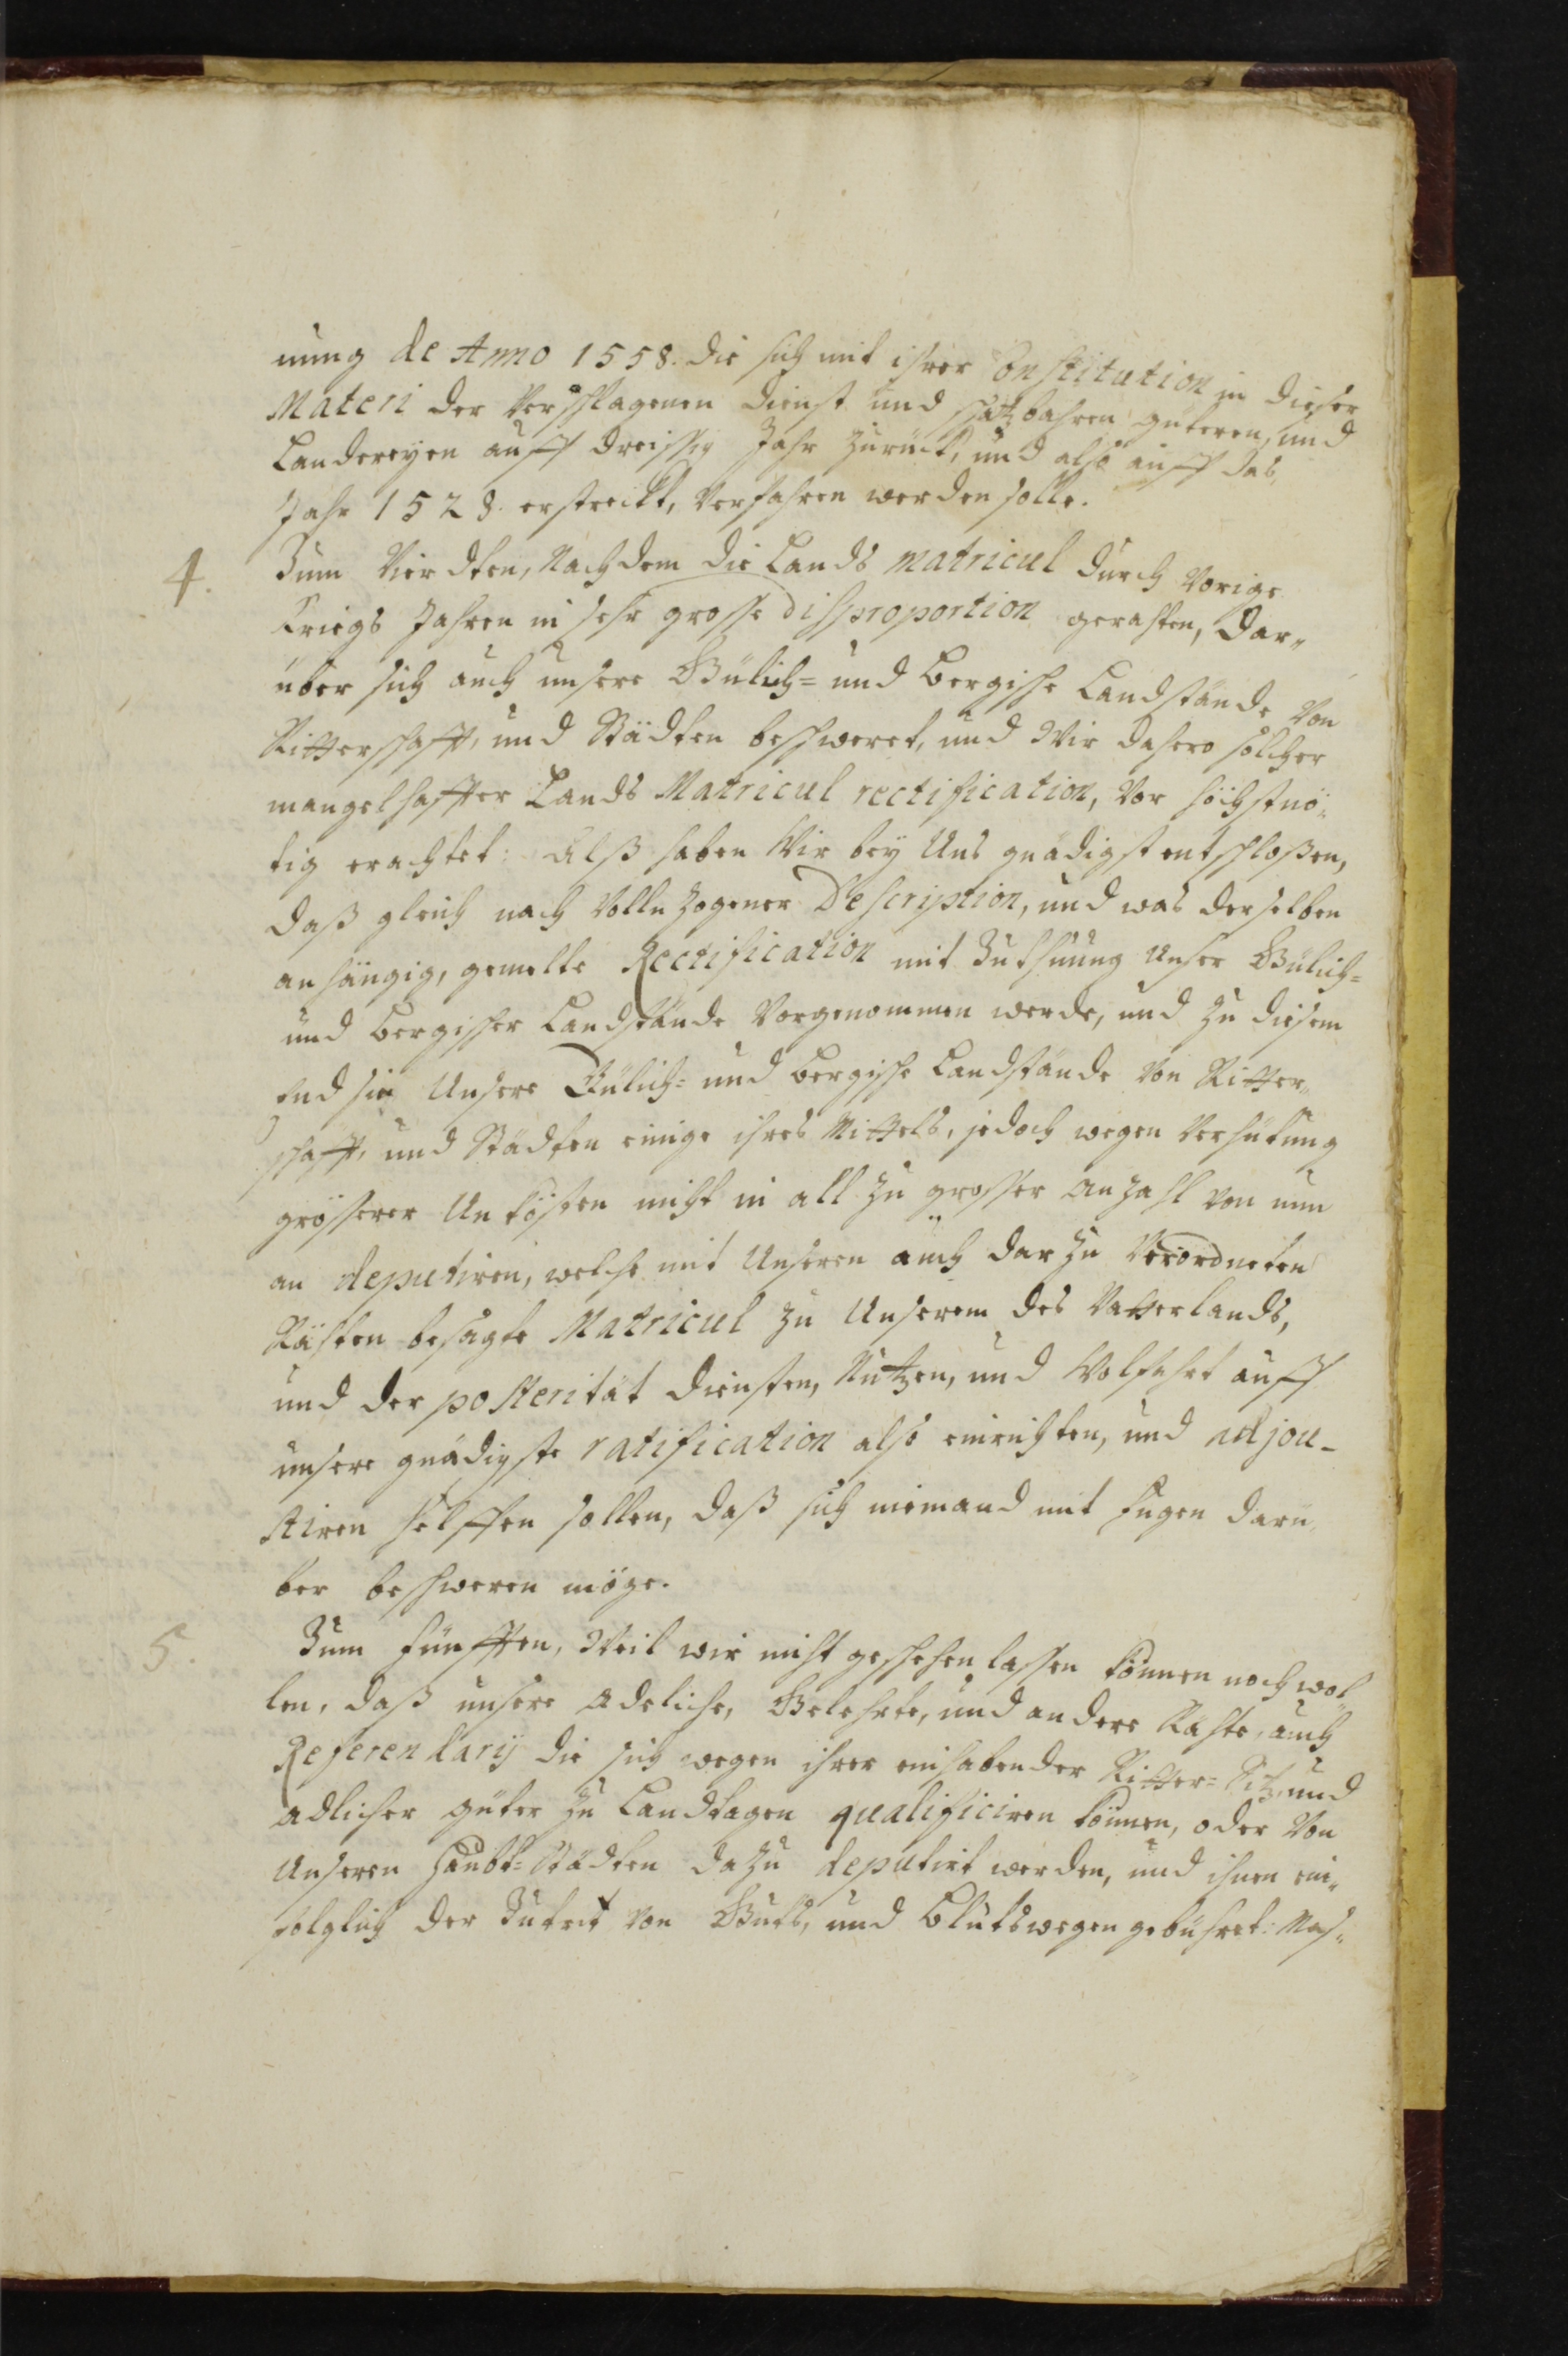 nung de Anno 1558. die sich mit ihrer Constitution in dieser
Materi der Verschlagenen dienst und schatzbahren güteren, und
Landereyen auff dreissig Jahr zurück, und also auff das
Jahr 1528. erstreckt, Verfahren werden solle.
4. Zum Vierdten, Nachdem die Lands matricul durch Vorige
Kriegs Jahren in sehr grosse disproportion gerahten, dar„
über sich auch unsere Gülich= und Bergische Landstände Von
Ritterschafft, und Städten beschweret, und Wir dahero solcher
mangelhaffter Lands Matricul rectification, Vor höchstnö„
tig erachtet: Alß haben Wir bey Uns gnädigst entschloßen,
daß gleich nach Vollnzogener Description, und was derselben
anhängig, gemelte Rectification mit Zuthuung Unser Gülich=
und Bergischer Landstände Vorgenommen werde, und zu diesem
End sie Unsere Gülich= und Bergische Landstände Von Ritter„
schafft, und Städten einige ihres Mittels, jedoch wegen Verhütung
grösserer Unkösten nicht in all zu grosser Anzahl von nun
an deputiren, welche mit Unseren auch darzu Verordneten
Rähten besagte Matricul zu Unserem des Vatterlands,
und der posteritat diensten, Nutzen, und Wolfahrt auff
unsere gnädigste ratification also einrichten, und adjou-
stiren helffen sollen, daß sich niemand mit fugen darü„
ber beschweren möge.
5. Zum fünfften, Weil wir nicht geschehen lassen können noch wol„
len, daß unsere Adeliche, Gelehrte, und andere Rähte, auch
Referendarij die sich wegen ihrer einhabender Ritter= Sitz, und
adlicher güter zu Landtagen qualificiren können, oder Von
Unseren Haubt= Städten dazu deputirt werden, und ihnen ein„
folglich der Zutrit von Guts, und Blutswegen gebühret: Nach„